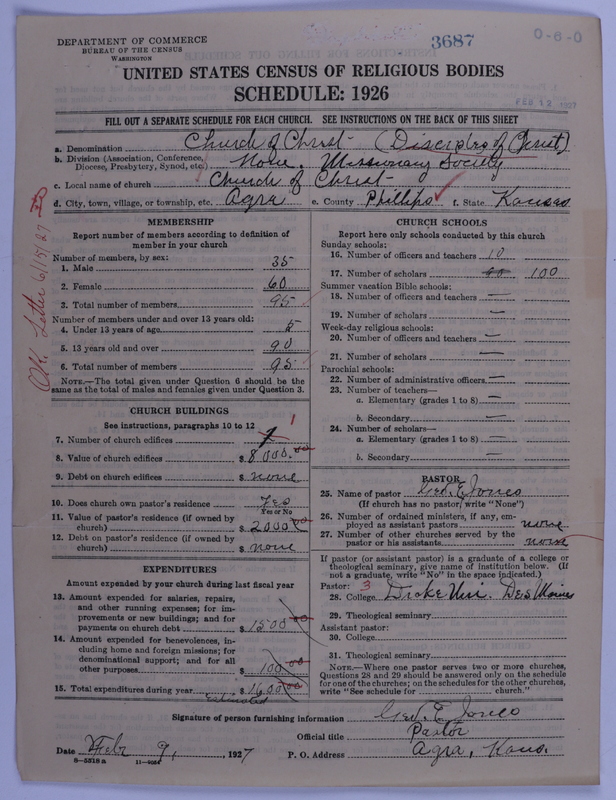 3687
0-6-0
DEPARTMENT OF COMMERCE
BUREAU OF THE CENSUS
WASHINGTON
UNITED STATES CENSUS OF RELIGIOUS BODIES
SCHEDULE: 1926
FEB 12 1927
FILL OUT A SEPARATE SCHEDULE FOR EACH CHURCH. SEE INSTRUCTIONS ON THE BACK OF THIS SHEET
a. Denomination Church of Christ (Disciples of Christ)
b. Division (Association, Conference, Diocese, Presbytery, Synod, etc.) None. Missionary Society
c. Local name of church Church of Christ
d. City, town, village, or township, etc. Agra e. County Phillips f. State Kansas
O.K. Letter 6/15/27
MEMBERSHIP
Report number of members according to definition of
member in your church
Number of members, by sex:
1. Male 35
2. Female 60
3. Total number of members 95
Number of members under and over 13 years old:
4. Under 13 years of age 5
5. 13 years old and over 90
6. Total number of members 95
NOTE.—The total given under Question 6 should be the
same as the total of males and females given under Question 3.
CHURCH BUILDINGS
See instructions, paragraphs 10 to 12
7. Number of church edifices 1
8. Value of church edifices $ 8000.00
9. Debt on church edifices $ none
10. Does church own pastor's residence Yes
Yes or No
11. Value of pastor's residence (if owned by
church) $ 2000
12. Debt on pastor's residence (if owned by
church) $ none
EXPENDITURES
Amount expended by your church during last fiscal year
13. Amount expended for salaries, repairs,
and other running expenses; for im-
provements or new buildings; and for
payments on church debt $ 1500.00
14. Amount expended for benevolences, in-
cluding home and foreign missions; for
denominational support; and for all
other purposes $ 100.00
15. Total expenditures during year $ 1600.00
Estimated
CHURCH SCHOOLS
Report here only schools conducted by this church
Sunday schools:
16. Number of officers and teachers 10
17. Number of scholars 100
Summer vacation Bible schools:
18. Number of officers and teachers —
19. Number of scholars —
Week-day religious schools:
20. Number of officers and teachers —
21. Number of scholars —
Parochial schools:
22. Number of administrative officers —
23. Number of teachers—
a. Elementary (grades 1 to 8) —
b. Secondary —
24. Number of scholars—
a. Elementary (grades 1 to 8) —
b. Secondary —
PASTOR
25. Name of pastor Geo. E. Jones
(If church has no pastor, write "None")
26. Number of ordained ministers, if any, em-
ployed as assistant pastors none
27. Number of other churches served by the
pastor or his assistants none
If pastor (or assistant pastor) is a graduate of a college or
theological seminary, give name of institution below. (If
not a graduate, write "No" in the space indicated.)
Pastor: 3
28. College Drake Uni. Des Moines
29. Theological seminary
Assistant pastor:
30. College
31. Theological seminary
NOTE.—Where one pastor serves two or more churches,
Questions 28 and 29 should be answered only on the schedule
for one of the churches; on the schedules for the other churches,
write "See schedule for church."
Signature of person furnishing information Geo. E. Jones
Official title Pastor
Date Feb 9, 1927 P. O. Address Agra, Kans.
8-5318 a 11-4034